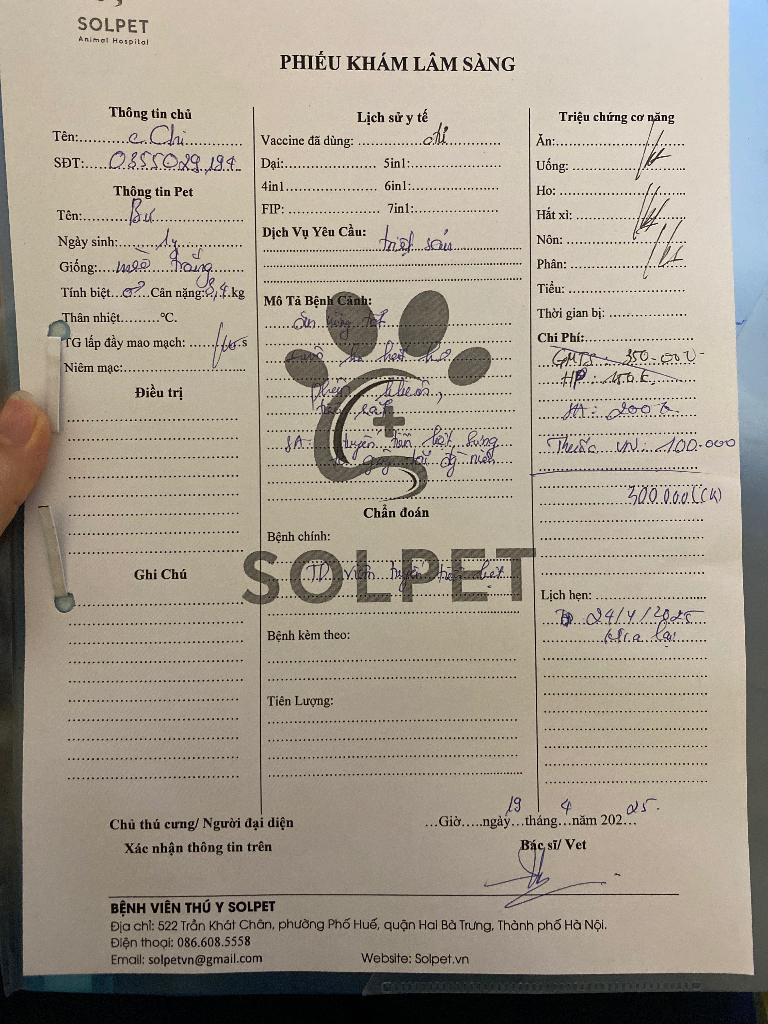 SOLPET
Animal Hospital
PHIẾU KHÁM LÂM SÀNG
Thông tin chủ
Tên: c. Chi
SĐT: 0355029.194
Thông tin Pet
Tên: Bu
Ngày sinh: 1y
Giống: mèo trắng
Tính biệt ♂ Cân nặng: 3,4 kg
Thân nhiệt..........°C.
TG lấp đầy mao mạch: s
Niêm mạc:
Điều trị
Ghi Chú
Lịch sử y tế
Vaccine đã dùng:
Dại: 5in1:
4in1 6in1:
FIP: 7in1:
Dịch Vụ Yêu Cầu: triệt sản
Mô Tả Bệnh Cảnh:
Ăn uống tốt
SA: tuyến tiền liệt sưng
Chẩn đoán
Bệnh chính:
TD viêm tuyến tiền liệt
SOLPET
Bệnh kèm theo:
Tiên Lượng:
Triệu chứng cơ năng
Ăn:
Uống:
Ho:
Hắt xì:
Nôn:
Phân:
Tiểu:
Thời gian bị:
Chi Phí:
GMTS 350.000
HP:
SA: 200k
Thuốc VN: 100.000
300.000 (CK)
Lịch hẹn:
24/4/2025
ktra lại
Chủ thú cưng/ Người đại diện
Xác nhận thông tin trên
...Giờ.....ngày 19 tháng 4 năm 2025.
Bác sĩ/ Vet
BỆNH VIÊN THÚ Y SOLPET
Địa chỉ: 522 Trần Khát Chân, phường Phố Huế, quận Hai Bà Trưng, Thành phố Hà Nội.
Điện thoại: 086.608.5558
Email: solpetvn@gmail.com Website: Solpet.vn